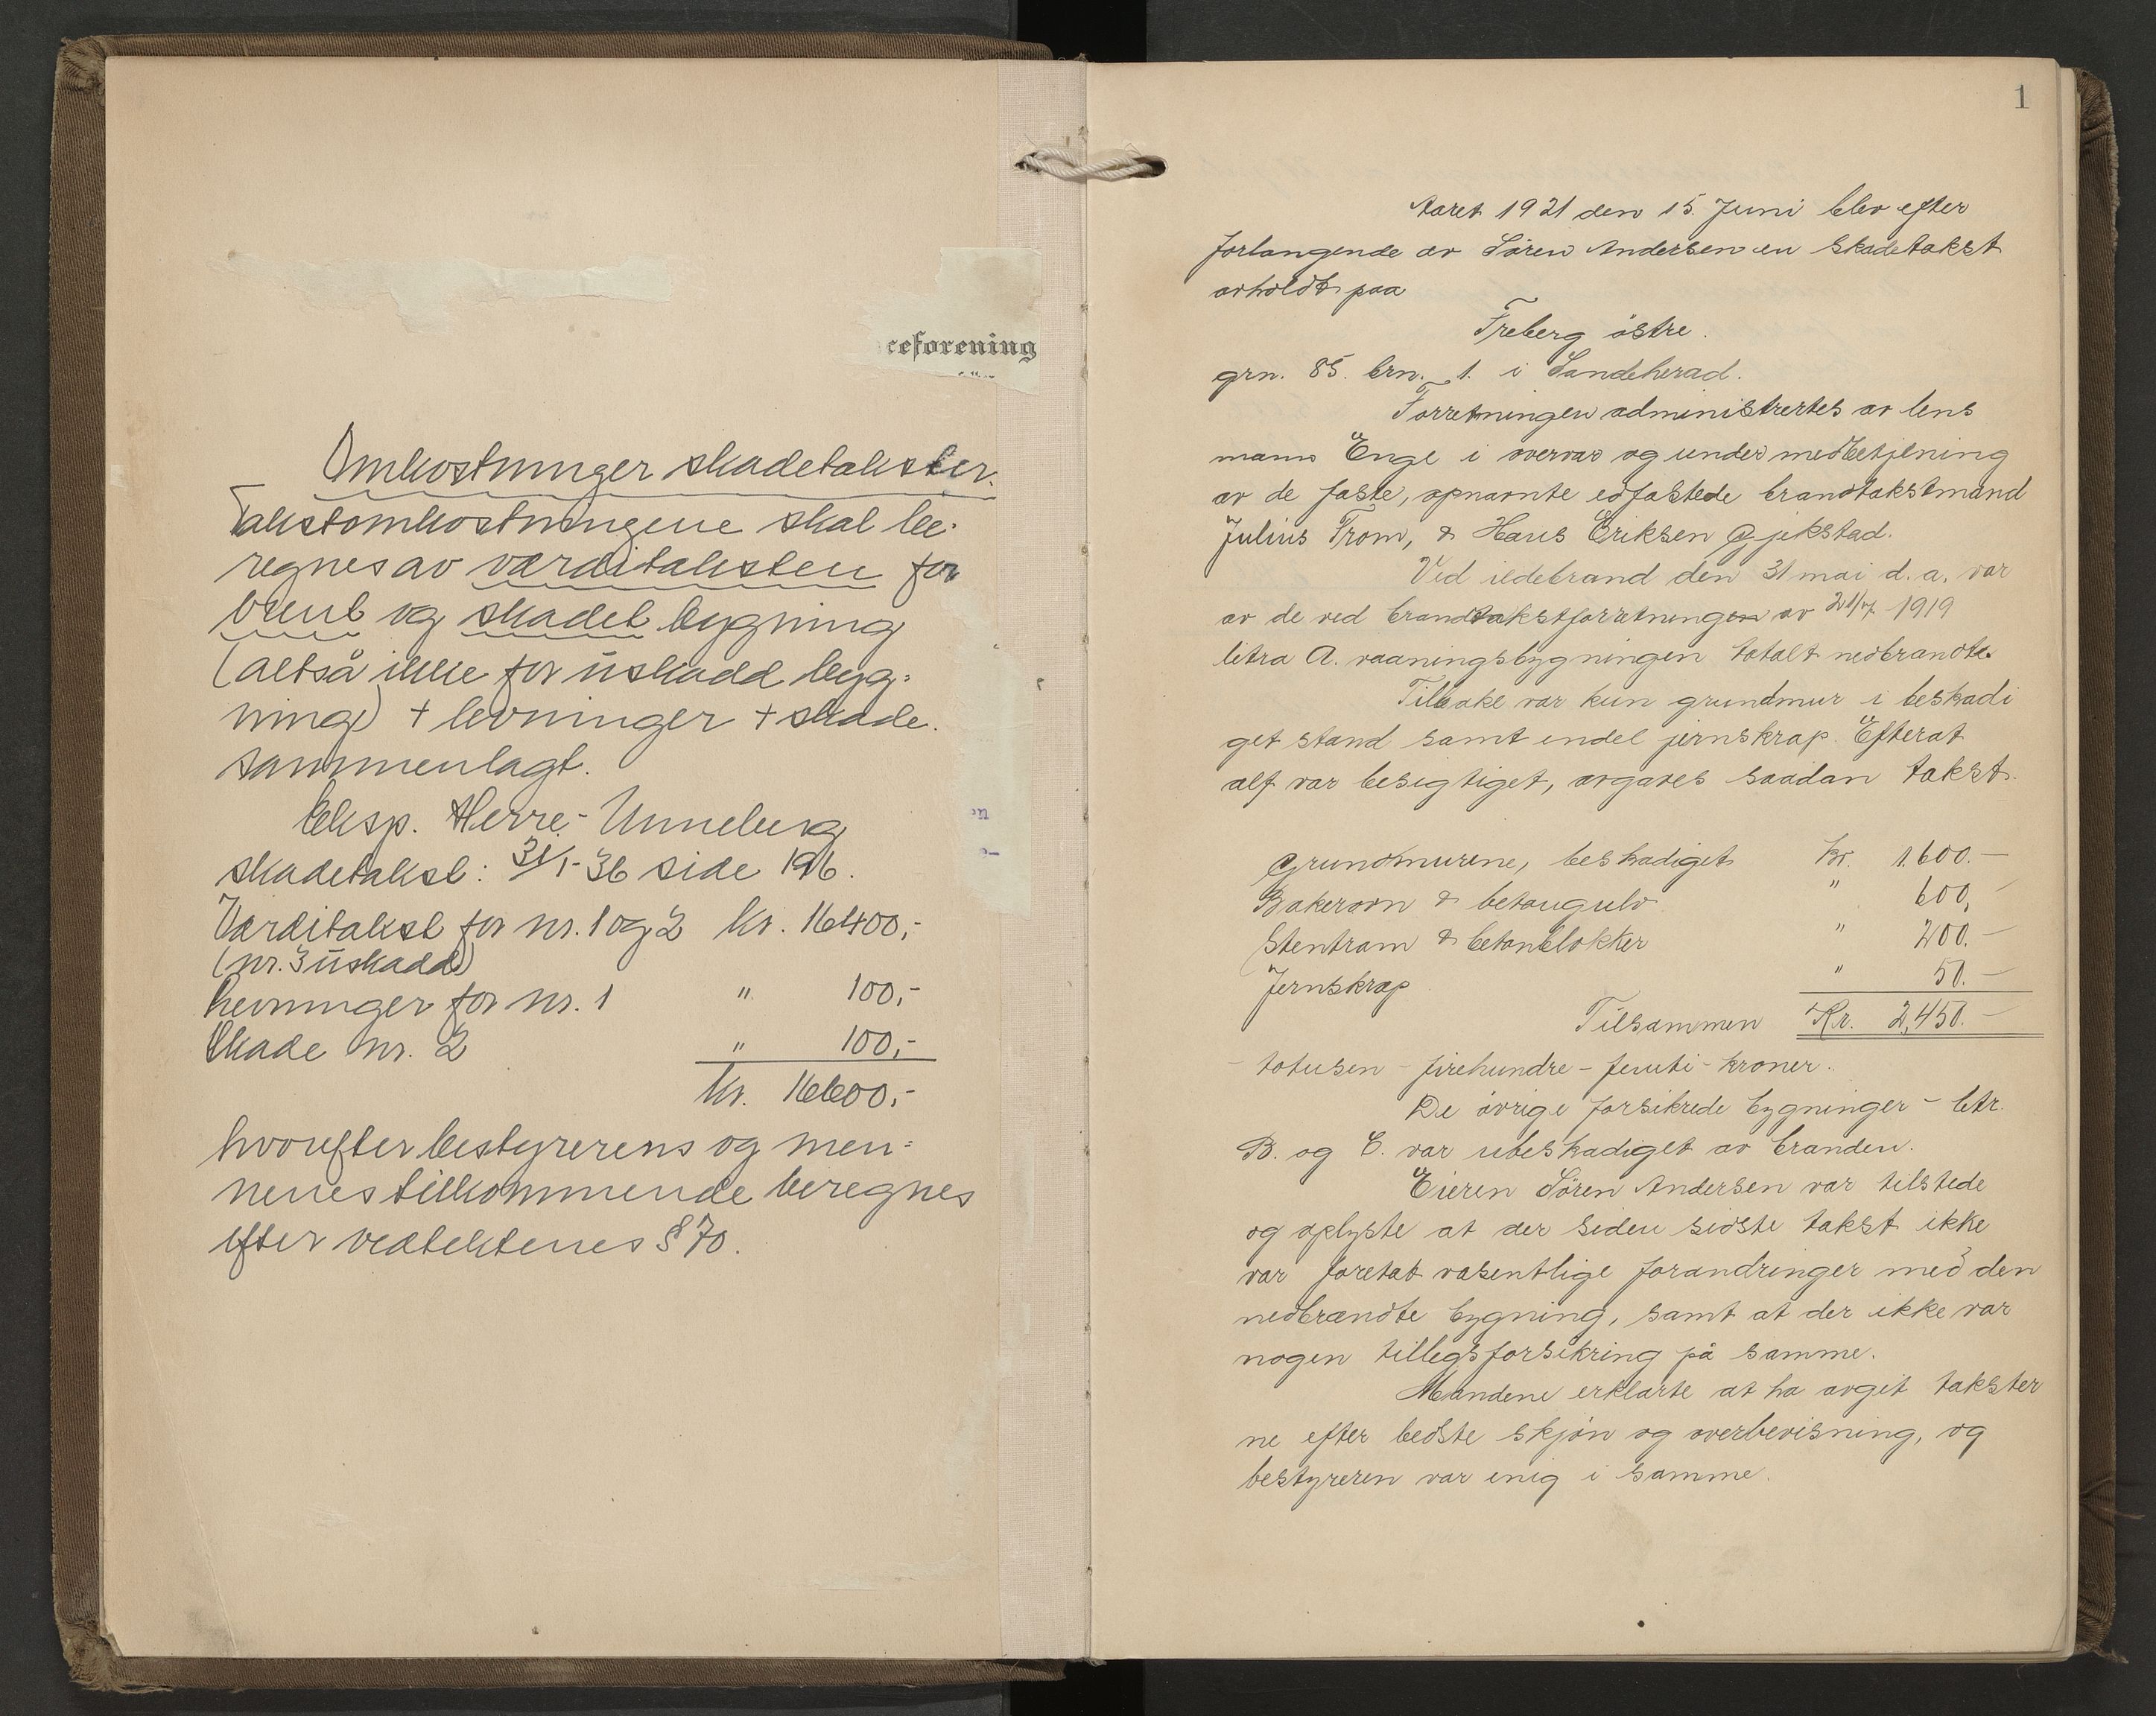 ceforening
Omkostninger skadetakster.
Takstomkostningene skal be-
regnes av værditaksten for
brent og skadet bygning
(altså ikke for uskadd byg-
ning) + levninger + skade.
sammenlagt.
Eksp. Herre-Unneberg
skadetakst: 31/1-36 side 196.
Værditakst for nr. 1 og 2 kr. 16400,-
(nr. 3 uskadd)
Levninger for nr. 1 " 100,-
Skade nr. 2 " 100,-
kr. 16600,-
hvorefter bestyrerens og men-
nenes tilkommende beregnes
efter vedtektenes § 70.
1
Aaret 1921 den 15. Juni blev efter
forlangende av Sören Andersen en skadetakst
avholdt paa
Freberg östre.
grn. 85. brn. 1. i Sandeherad.
Forretningen administrertes av lens
mann Enge i overvær og under medbetjening
av de faste, opnævnte edfæstede brandtakstmænd
Julius From, & Hans Eriksen Gjekstad.
Ved ildebrand den 31 mai d. a. var
av de ved brandtakstforretningen av 21/7. 1919
litra A. vaaningsbygningen totalt nedbrændte.
Tilbake var kun grundmur i beskadi
get stand samt endel jernskrap. Efterat
alt var besigtiget, avgaves saadan takst.
Grundmurene, beskadiget Kr. 1.600.-
Bakerovn & betongulv " 600,-
Stentram & betonblokker " 200.-
Jernskrap " 50.-
Tilsammen Kr. 2,450.-
- totusen - firehundre - femti - kroner.
De övrige forsikrede bygninger - litr.
B. og C. var ubeskadiget av branden.
Eieren Sören Andersen var tilstede
og oplyste at der siden sidste takst ikke
var foretat væsentlige forandringer med den
nedbrændte bygning, samt at der ikke var
nogen tillegsforsikring på samme.
Mændene erklærte at ha avgit takster
ne efter bedste skjön og overbevisning, og
bestyreren var enig i samme.